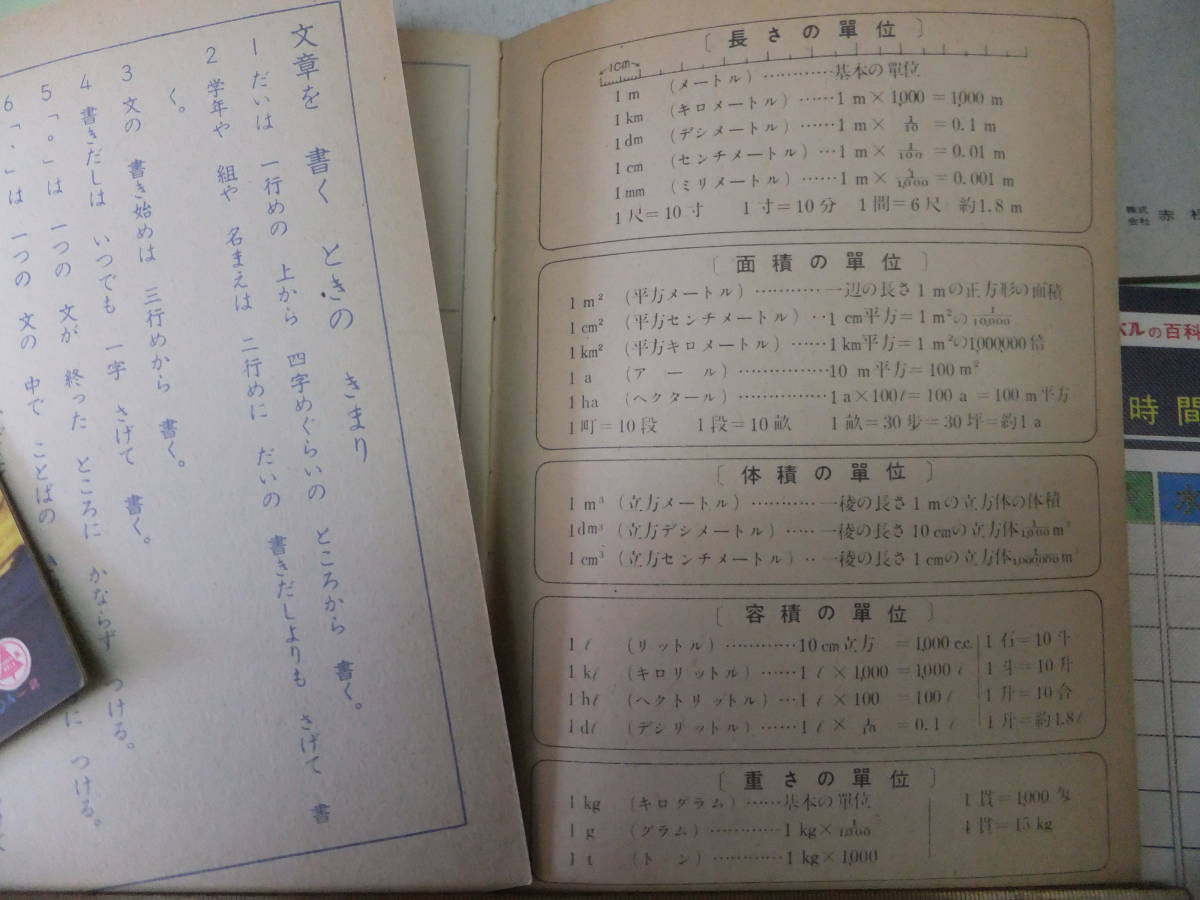 文章を 書く ときの きまり
1 だいは 一行めの 上から 四字めぐらいの ところから 書く。
2 学年や 組や 名まえは 二行めに だいの 書きだしよりも さげて 書
く。
3 文の 書き始めは 三行めから 書く。
4 書きだしは いつでも 一字 さげて 書く。
5 「。」は 一つの 文が 終った ところに かならず つける。
6 「、」は 一つの 文の 中で ことばの
に つける。
〔 長さの單位 〕
1cm
1 m (メートル)…………基本の單位
1 km (キロメートル)……1 m × 1,000 = 1,000 m
1 dm (デシメートル)……1 m × 1/10 = 0.1 m
1 cm (センチメートル)…1 m × 1/100 = 0.01 m
1 mm (ミリメートル)……1 m × 1/1,000 = 0.001 m
1尺=10寸 1寸=10分 1間=6尺 約1.8 m
〔 面積の單位 〕
1 m² (平方メートル)…………一辺の長さ1 mの正方形の面積
1 cm² (平方センチメートル)‥1 cm平方=1 m²の1/10,000
1 km² (平方キロメートル)……1 km平方=1 m²の1,000,000倍
1 a (アール)……………10 m平方=100 m²
1 ha (ヘクタール)……………1 a×100ℓ=100 a =100 m平方
1町=10段 1段=10畝 1畝=30歩=30坪=約1 a
〔 体積の單位 〕
1 m³ (立方メートル)…………一稜の長さ1 mの立方体の体積
1dm³ (立方デシメートル)‥‥一稜の長さ10 cmの立方体1/1,000 m³
1 cm³ (立方センチメートル)‥一稜の長さ1 cmの立方体1/1,000,000 m³
〔 容積の單位 〕
1 ℓ (リットル)…………10 cm立方 =1,000 c.c. 1石=10斗
1 kℓ (キロリットル)……1 ℓ × 1,000 =1,000 ℓ 1斗=10升
1 hℓ (ヘクトリットル)…1 ℓ × 100 = 100 ℓ 1升=10合
1 dℓ (デシリットル)……1 ℓ × 1/10 = 0.1 ℓ 1升=約1.8ℓ
〔 重さの單位 〕
1 kg (キログラム)……基本の單位 1貫=1,000匁
1 g (グラム)…………1 kg×1/1,000 4貫=15 kg
1 t (トン)…………1 kg×1,000
株式会社 赤
ベルの百科
時間
水